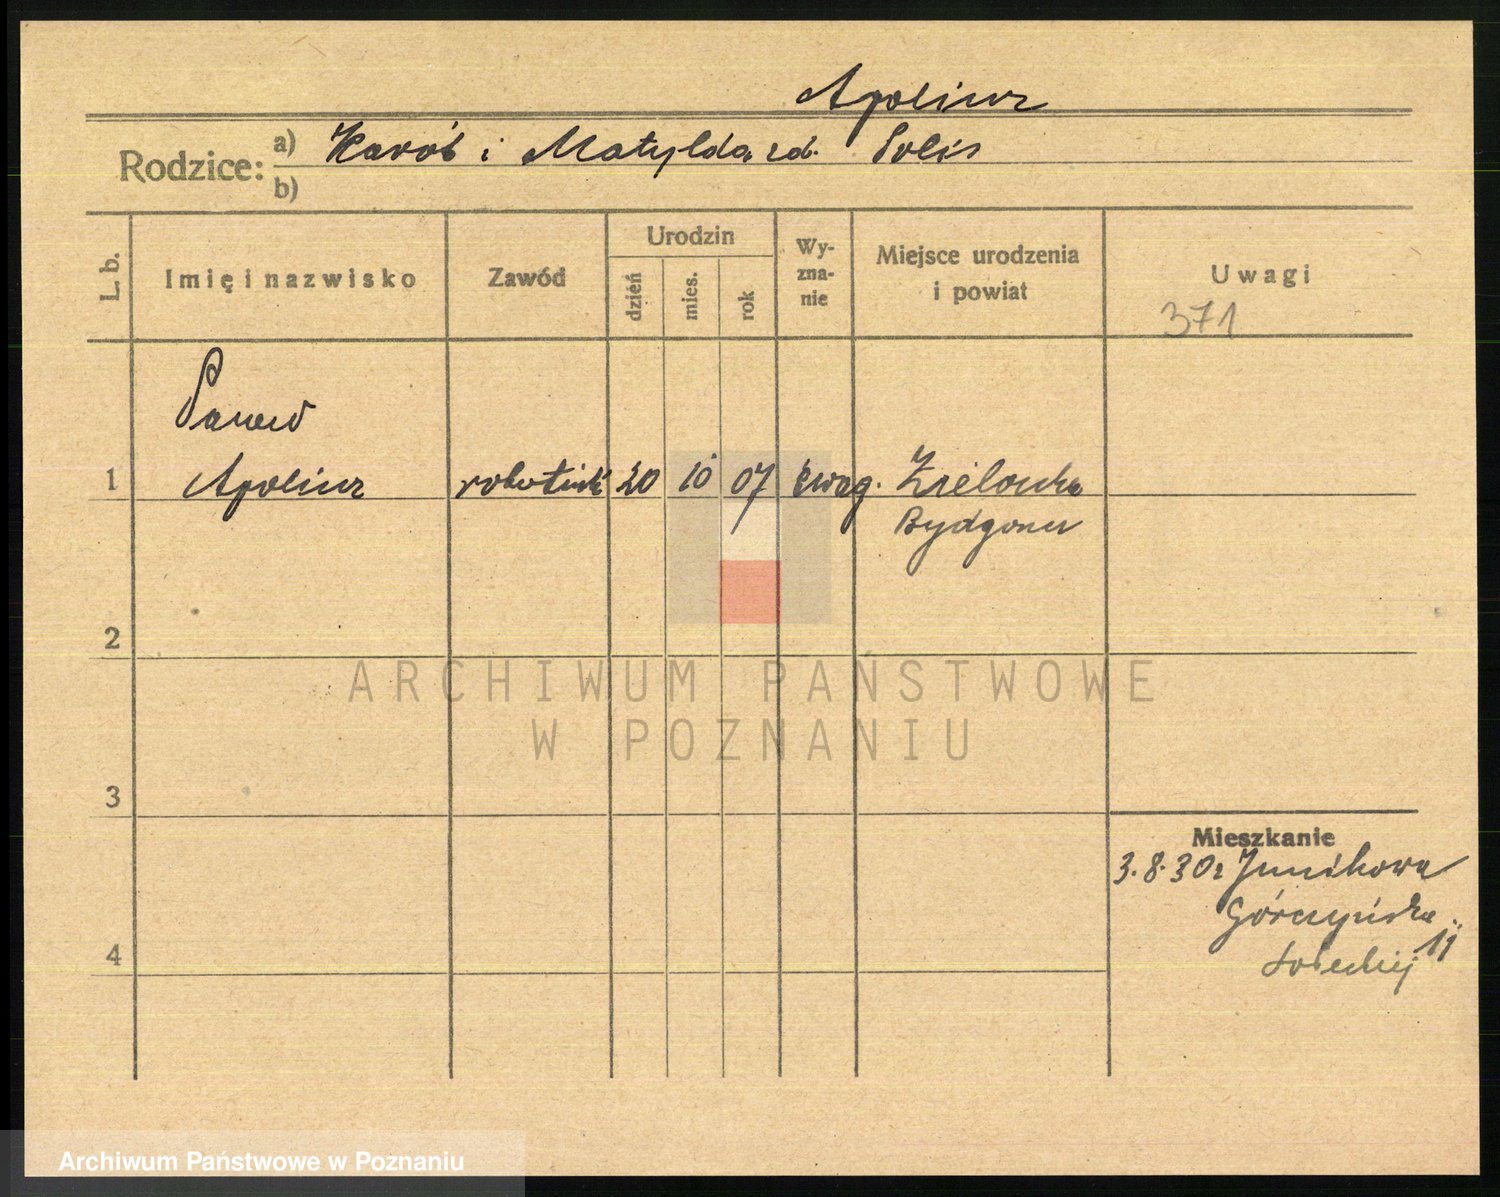 Apolinr
Rodzice: a) Karol i Matylda zd. Solis
b)
L. b.
Imię i nazwisko
Zawód
Urodzin
dzień
mies.
rok
Wy-
zna-
nie
Miejsce urodzenia
i powiat
Uwagi
371
1
Apolinr robotnik 20 10 07 ewag. Zielonka
Bydgoszcz
2
ARCHIWUM PAŃSTWOWE
W POZNANIU
3
Mieszkanie
3.8.30r Junikowo
Górczyńska
11
4
Archiwum Państwowe w Poznaniu